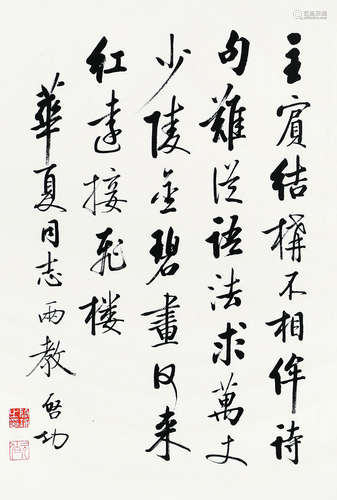 主賓結構不相侔詩
句難從語法求萬丈
少陵金碧畫何来
红遠接飛楼
華夏同志兩教 啓功